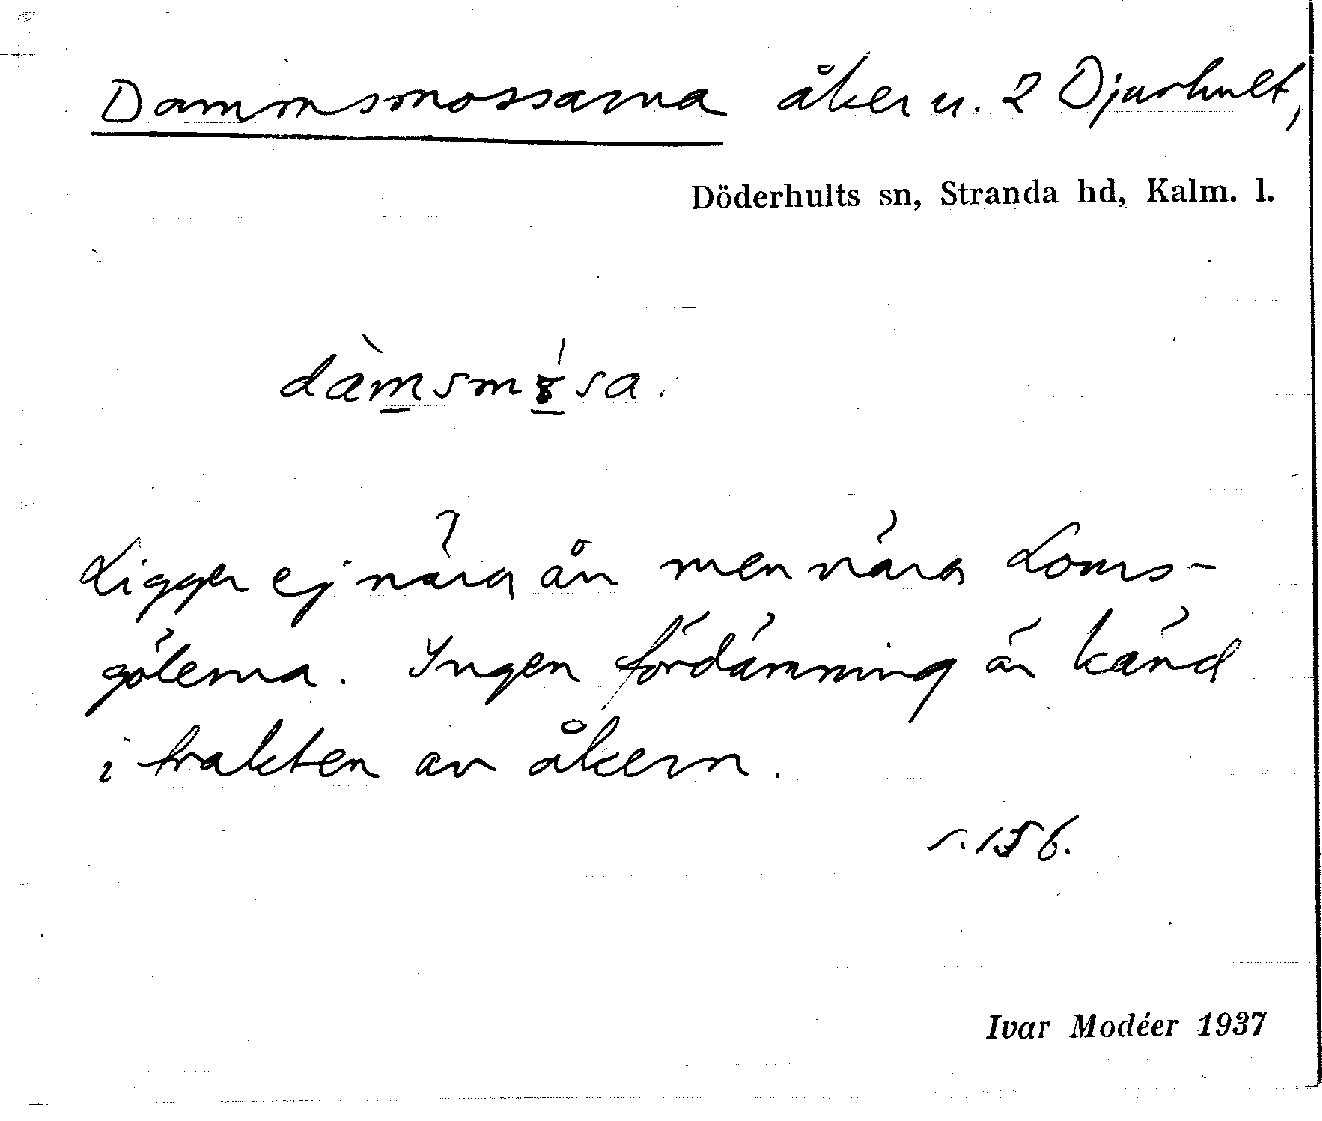 Dammsmossarna åker u. 2 Djurhult,
Döderhults sn, Stranda hd, Kalm. l.
dàmsmɤ́sa.
Ligger ej nära ån men nära Loms-
gölerna. Ingen fördämning är känd
i trakten av åkern.
s. 156.
Ivar Modéer 1937